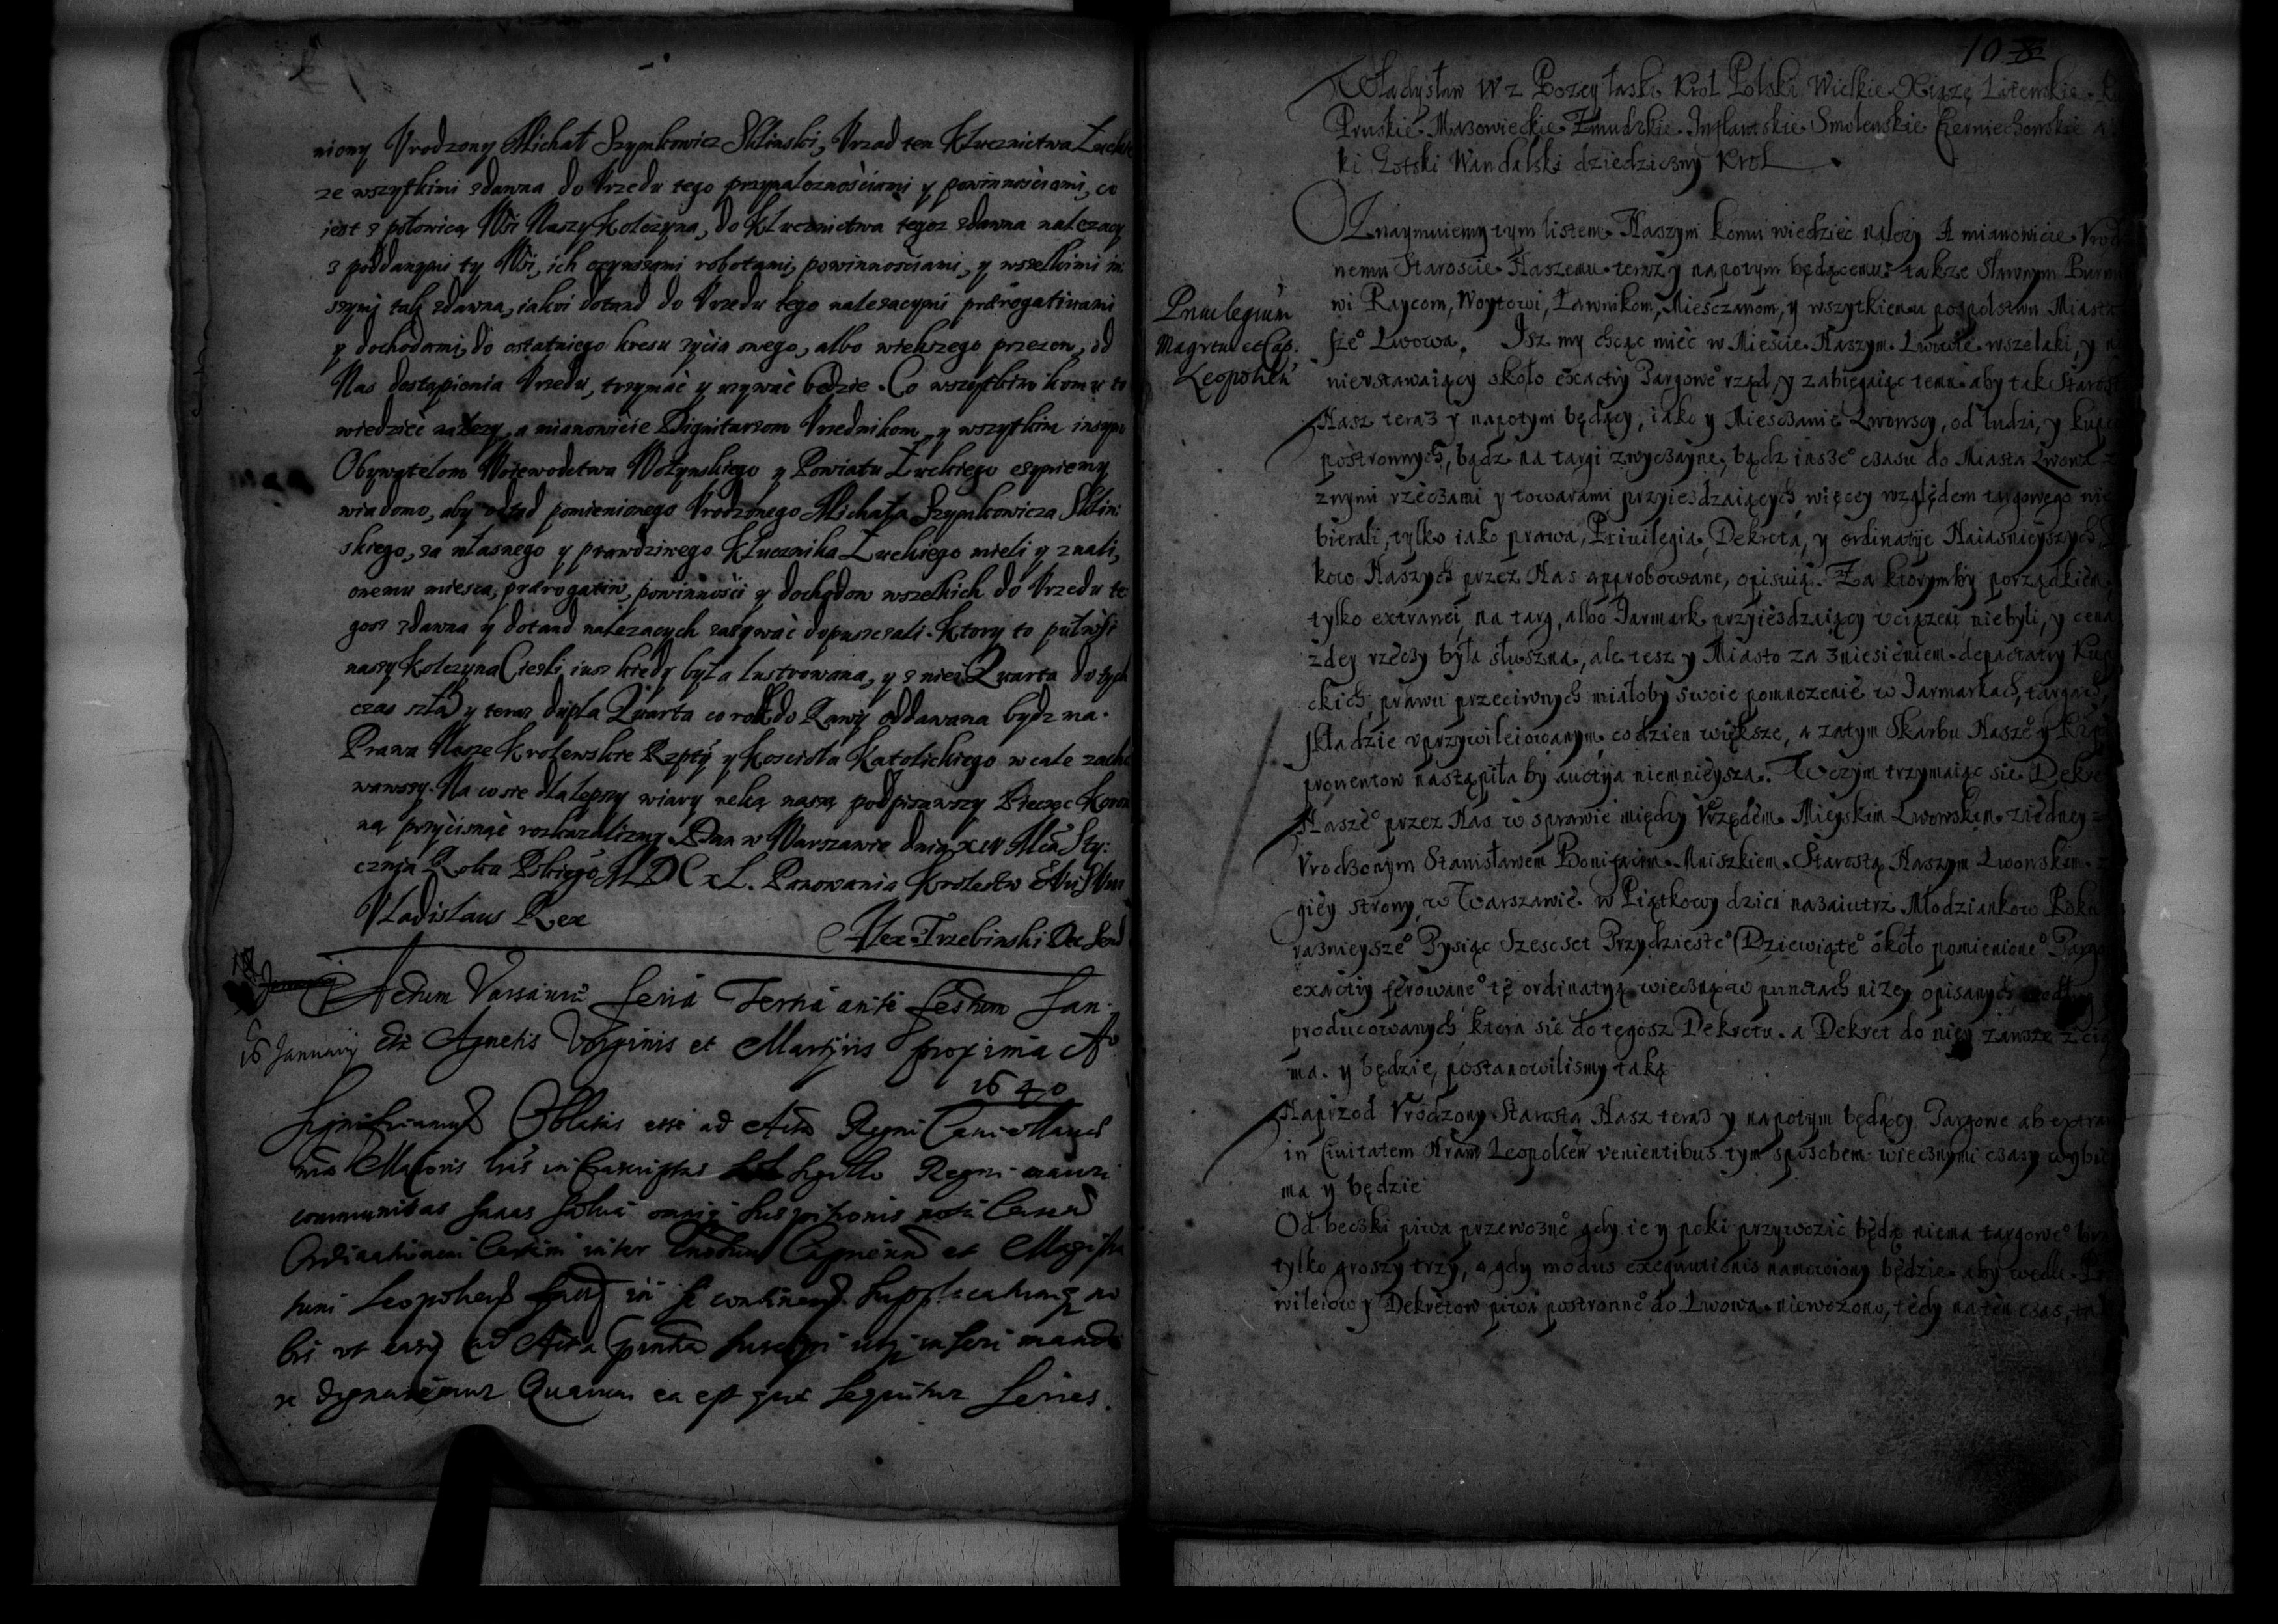 niony Vrodzony Michał Szypakowicz Skliński, Vrząd ten Kłucznictwa Łuckie
ze wszytkimi zdawna do Vrzedu tego przynaloznościami y powinnościami, co
iest z połowicą Wsi Naszy Kolczyna, do Kłucznictwa tegoz zdawna nalezacy
z poddanymi ty Wsi, ich czynszami robotami, powinnościami, y wszelkimi in
szymi tak zdawna, iakoi dotand do Vrzedu tego nalezacymi prærogatiwami
y dochodami, do ostatniego kresu zycia swego, albo większego przezen, od
Nas dostąpienia Vrzedu, trzymać y uzywać będzie. Co wszytkim komu to
wiedzieć nalezy, a mianowicie Dignitarzom Vrzednikom, y wszytkim inszym
Obywatelom Woiewodztwa Wołynskiego y Powiatu Łuckiego czyniemy
wiadomo, aby odtąd pomienionego Vrodzonego Michała Szypakowicza Sklin:
skiego, za własnego y prawdziwego Kłucznika Łuckiego mieli y znali,
onemu miesca, prærogatiw, powinności y dochodow wszelkich do Vrzedu te
goz zdawna y dotand nalezacych zazywać dopuszczali. Ktory to puł Wsi
naszy Kolczyna Ciesli iusz kiedy była lustrowana, y z niei Quarta do tych
czas szła y teraz dupla Quarta co rok do Rawy oddawana bydz ma.
Prawa Nasze Krolewskie Rzpty y Kosciola Katolickiego wcale zacho
wawszy. Na co sie dla lepszy wiary ręką naszą podpisawszy Pieczęc Koron
ną przycisnąć rozkazalismy. Dan w Warszawie dnia XIV Mca Sty:
cznia Roku Pskiego MDCXL. Panowania Krolestw
Vladislaus Rex
Alex: Trzebinski
16 Januarij
Actum Varsaviæ Feria Tertia ante Festum San
ctæ Agnetis Virginis et Martyris proxima Ao
1640
Significamus Oblatas esse ad Acta Regni Cancellariæ
Maioris lras infrascriptas Sigillo Regni
communitas sanas salvas omniq suspicionis nota
Ordinationem Certam inter et Magistra
tum Leopolien in se continen Supplicatumq no
bis vt easd ad Acta suscipi inseri manda
re dignaremur Quarum ea est quæ sequitur Series.
10
Władysław IV z Bozey łaski Krol Polski Wielkie Xiązę Litewskie
Pruskie Mazowieckie Zmudzkie Inflantskie Smolenskie Czerniechowskie
ki Gotski Wandalski dziedziczny Krol
Priuilegium
Magrtui et Cap.
Leopolien
Oznaymuiemy tym listem Naszym komu wiedziec nalezy A mianowicie Vrod
nemu Staroscie Naszemu teraz y napotym będącemu takze Sławnym Burmi
wi Raycom, Woytowi, Ławnikom, Miesczanom, y wszytkiemu pospolstwu Miasta
sze° Lwowa. Isz my chcąc mieć w Miescie Naszym Lwowie wszelaki, y
nievstawaiący około exactiy Targowe° rząd, y zabiegaiąc temu aby tak Starosta
Nasz teraz y napotym będący, iako y Miesczanie Lwowscy, od ludzi, y kupco
postronnych, bądz na targi zwyczayne, bądz insze° czasu do Miasta Lwowa z
znymi rzeczami y towarami przyiezdzaiących, więcey względem targowego nie
bierali, tylko iako prawa, Priuilegia, Dekreta, y ordinatye Naiasnieyszych
kow Naszych przez Nas approbowane, opisuią. Za ktorymby porządkiem
tylko extranei, na targ, albo Iarmark przyiezdzaiący vciązeni niebyli, y cena
zdey rzeczy była słuszna, ale tesz y Miasto za zniesieniem depactaty Kup
ckich prawu przeciwnych miałoby swoie pomnozenie w Iarmarkach, targach,
składzie vprzywileiowanym codzien większe, a zatym Skarbu Nasze° y
prowentow nastąpiła by auctya niemnieysza. W czym trzymaiąc sie Dekre
Nasze° przez Nas w sprawie między Vrzędem Mieyskim Lwowskim z iedney
Vrodzonym Stanisławem Bonifacim Mniszkiem Starostą Naszym Lwowskim z
giey strony, w Warszawie w Piątkowy dzien nazaiutrz Młodziankow Roku
raznieysze° Tysiąc Szescset Trzydzieste° Dziewiąte° około pomienione° Targo
exactiy ferowane° tę ordinatyą wieczną w punctach nizey opisanych
producowanych ktora sie do tegosz Dekretu a Dekret do niey zawsze
ma y będzie, postanowilismy taką
Naprzod Vrodzony Starosta Nasz teraz y napotym będący Targowe ab extra
in Ciuitatem Nram Leopolien venientibus tym sposobem wiecznymi czasy wybie
ma y będzie
Od beczki piwa przewozne° gdy ie y poki przywozić będą niema targowe° bra
tylko groszy trzy, a gdy modus exequutionis namowiony będzie aby wedle Pr
wileiow y Dekretow piwa postronne° do Lwowa niewozono, tedy na ten czas, ta